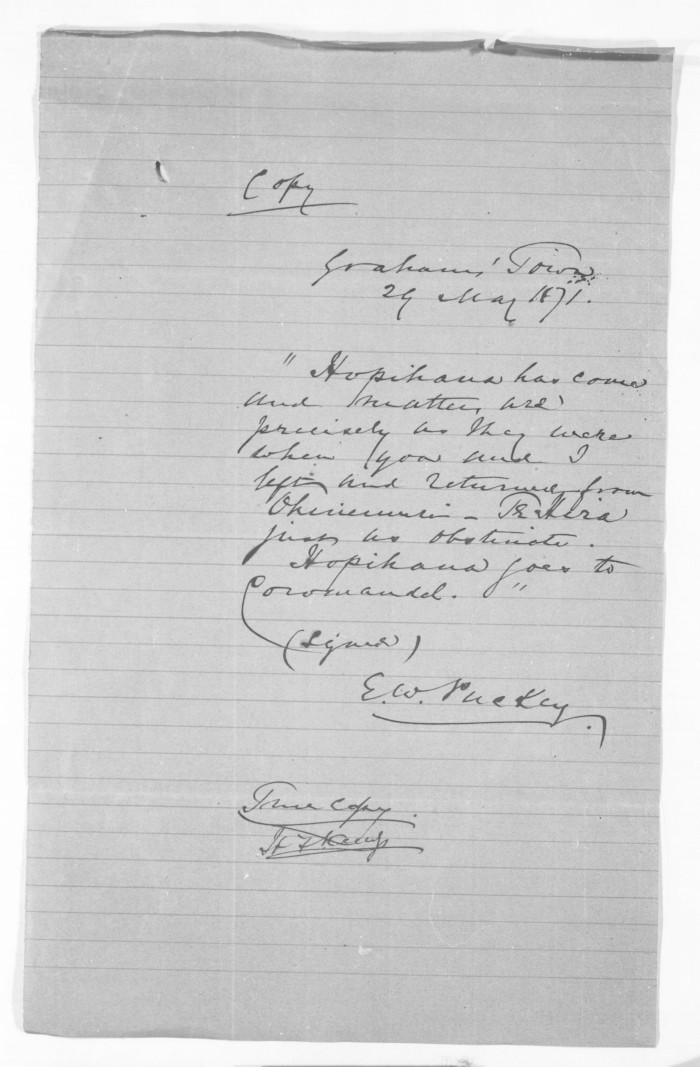 Copy
Grahams' Town
29 May 1871.
"Hopihana has come
and matters are
precisely as they were
when you and I
left and returned from
Ohinemuri - Te Hira
just as obstinate.
Hopihana goes to
Coromandel."
(Signed)
E. W. Puckey.
True copy.